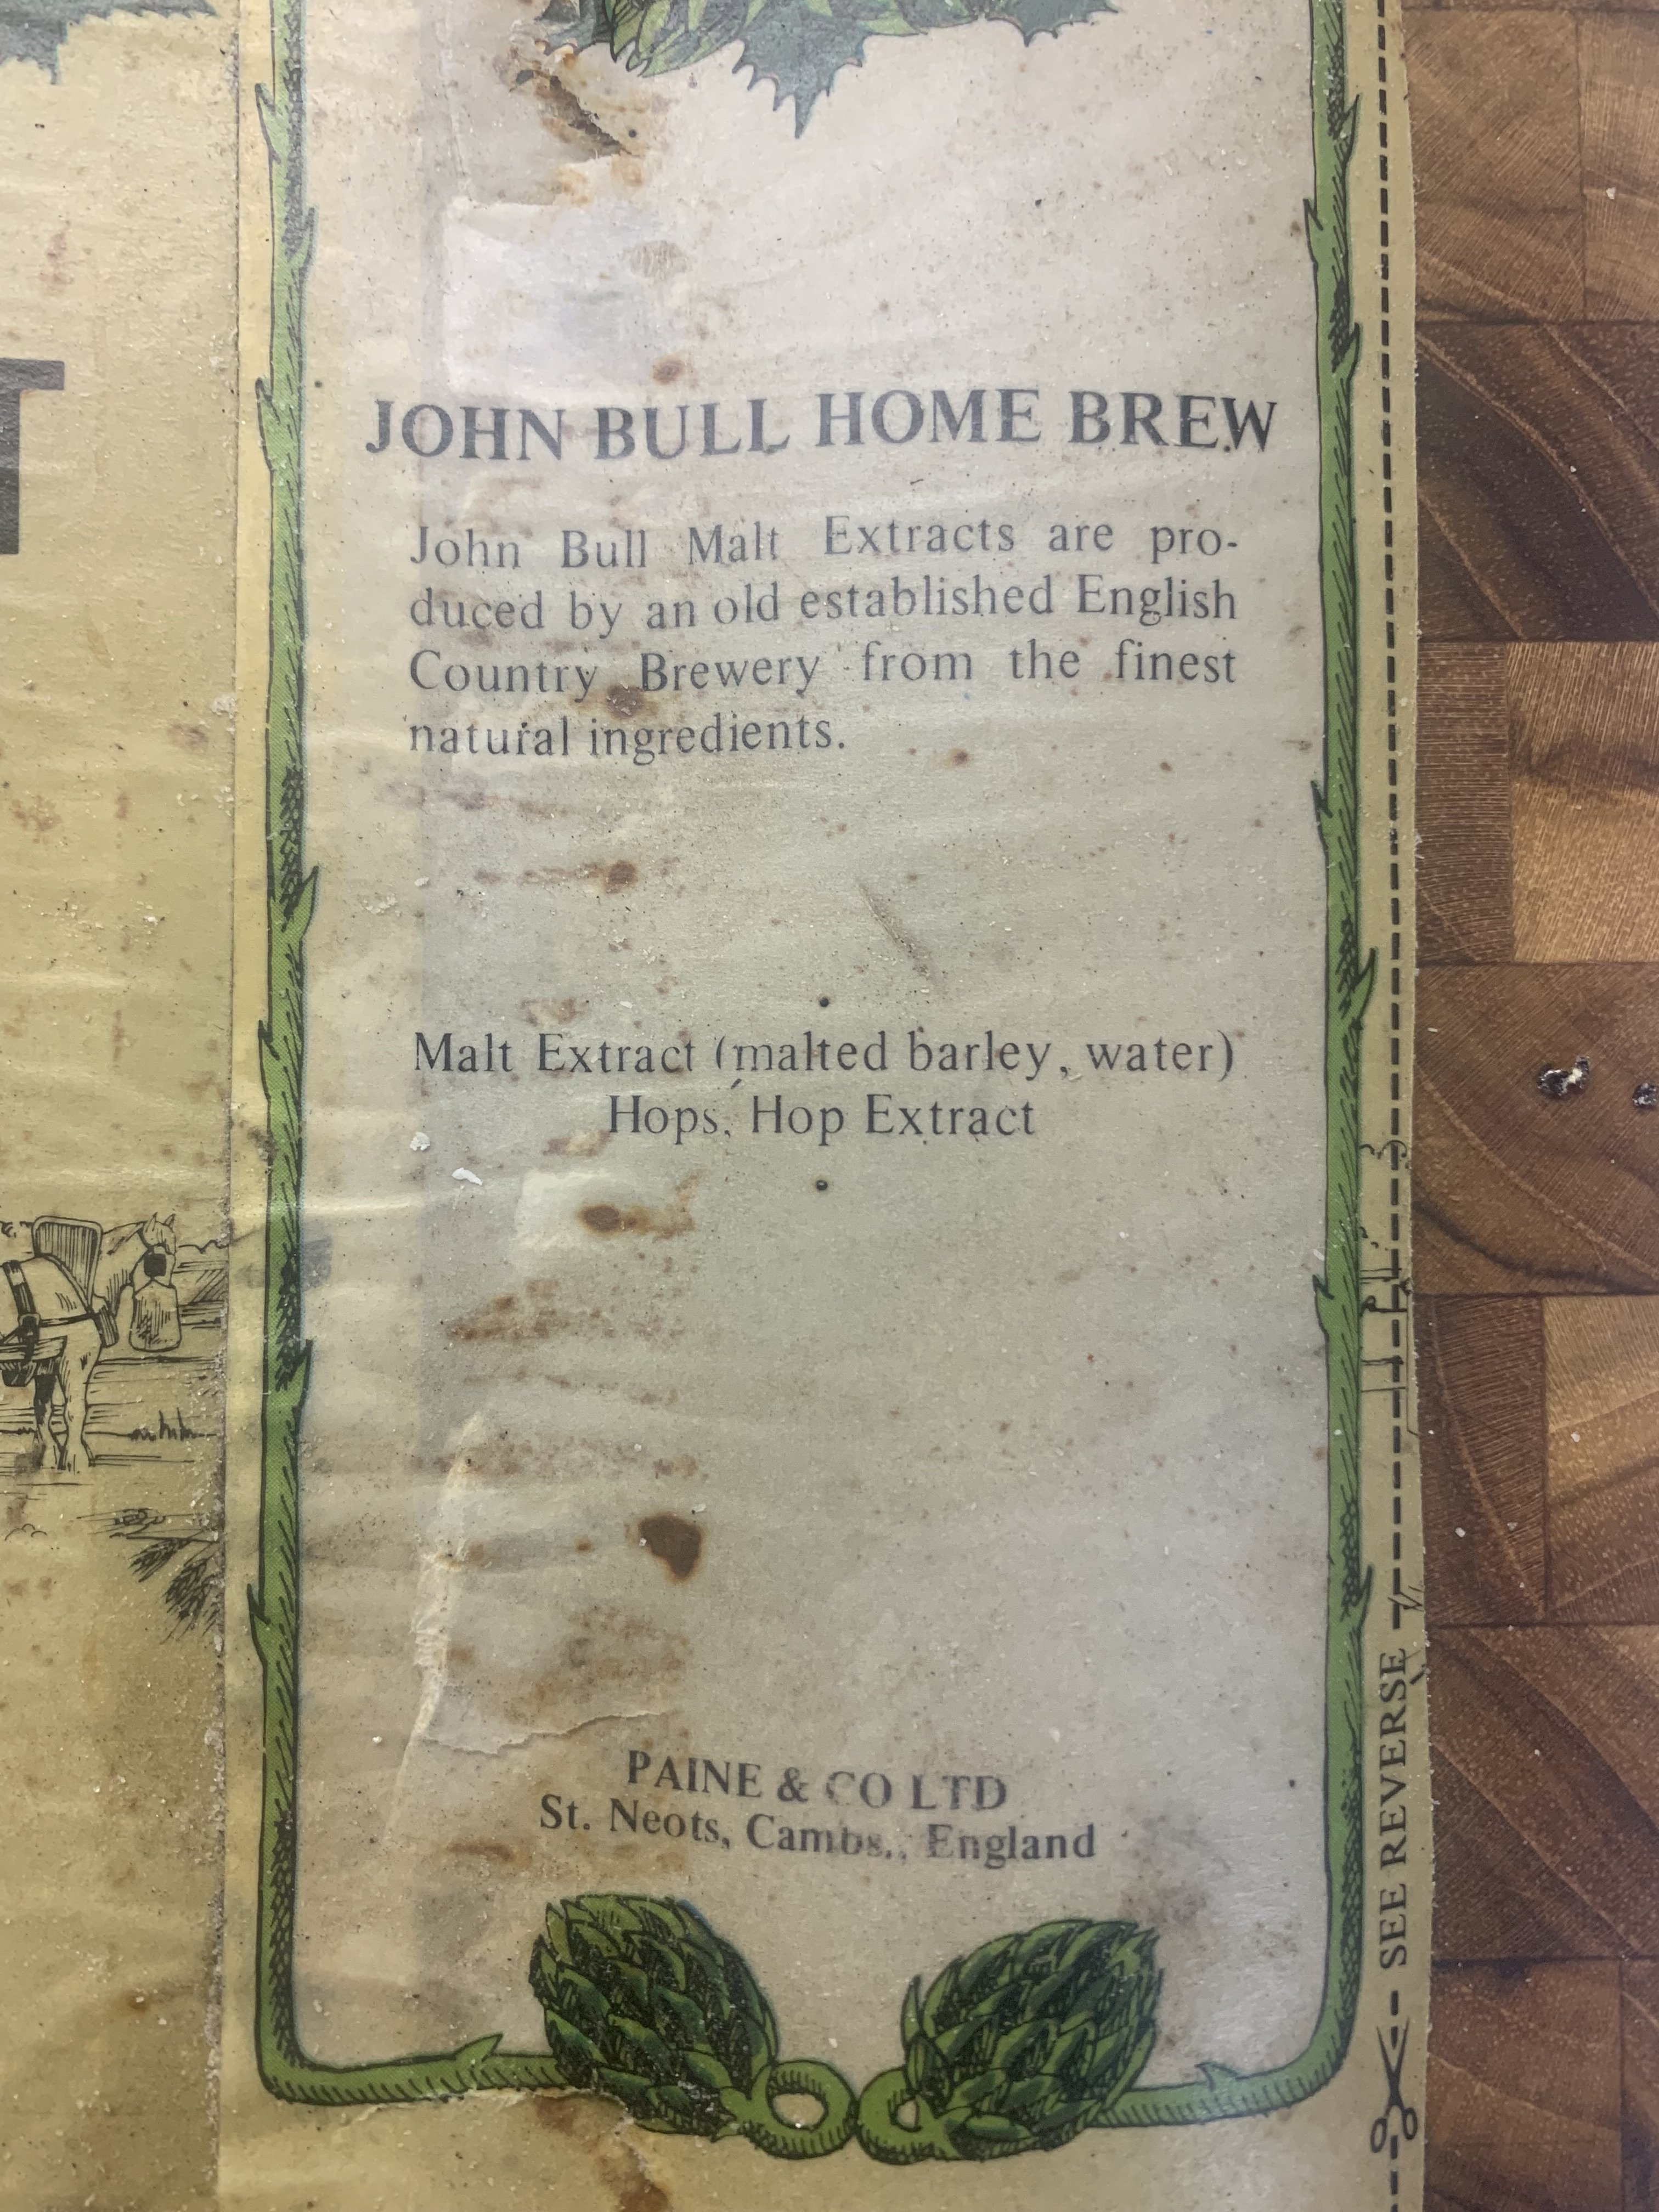 T
JOHN BULL HOME BREW
John Bull Malt Extracts are pro-
duced by an old established English
Country Brewery from the finest
natural ingredients.
Malt Extract (malted barley, water)
Hops, Hop Extract
PAINE & CO LTD
St. Neots, Cambs., England
SEE REVERSE